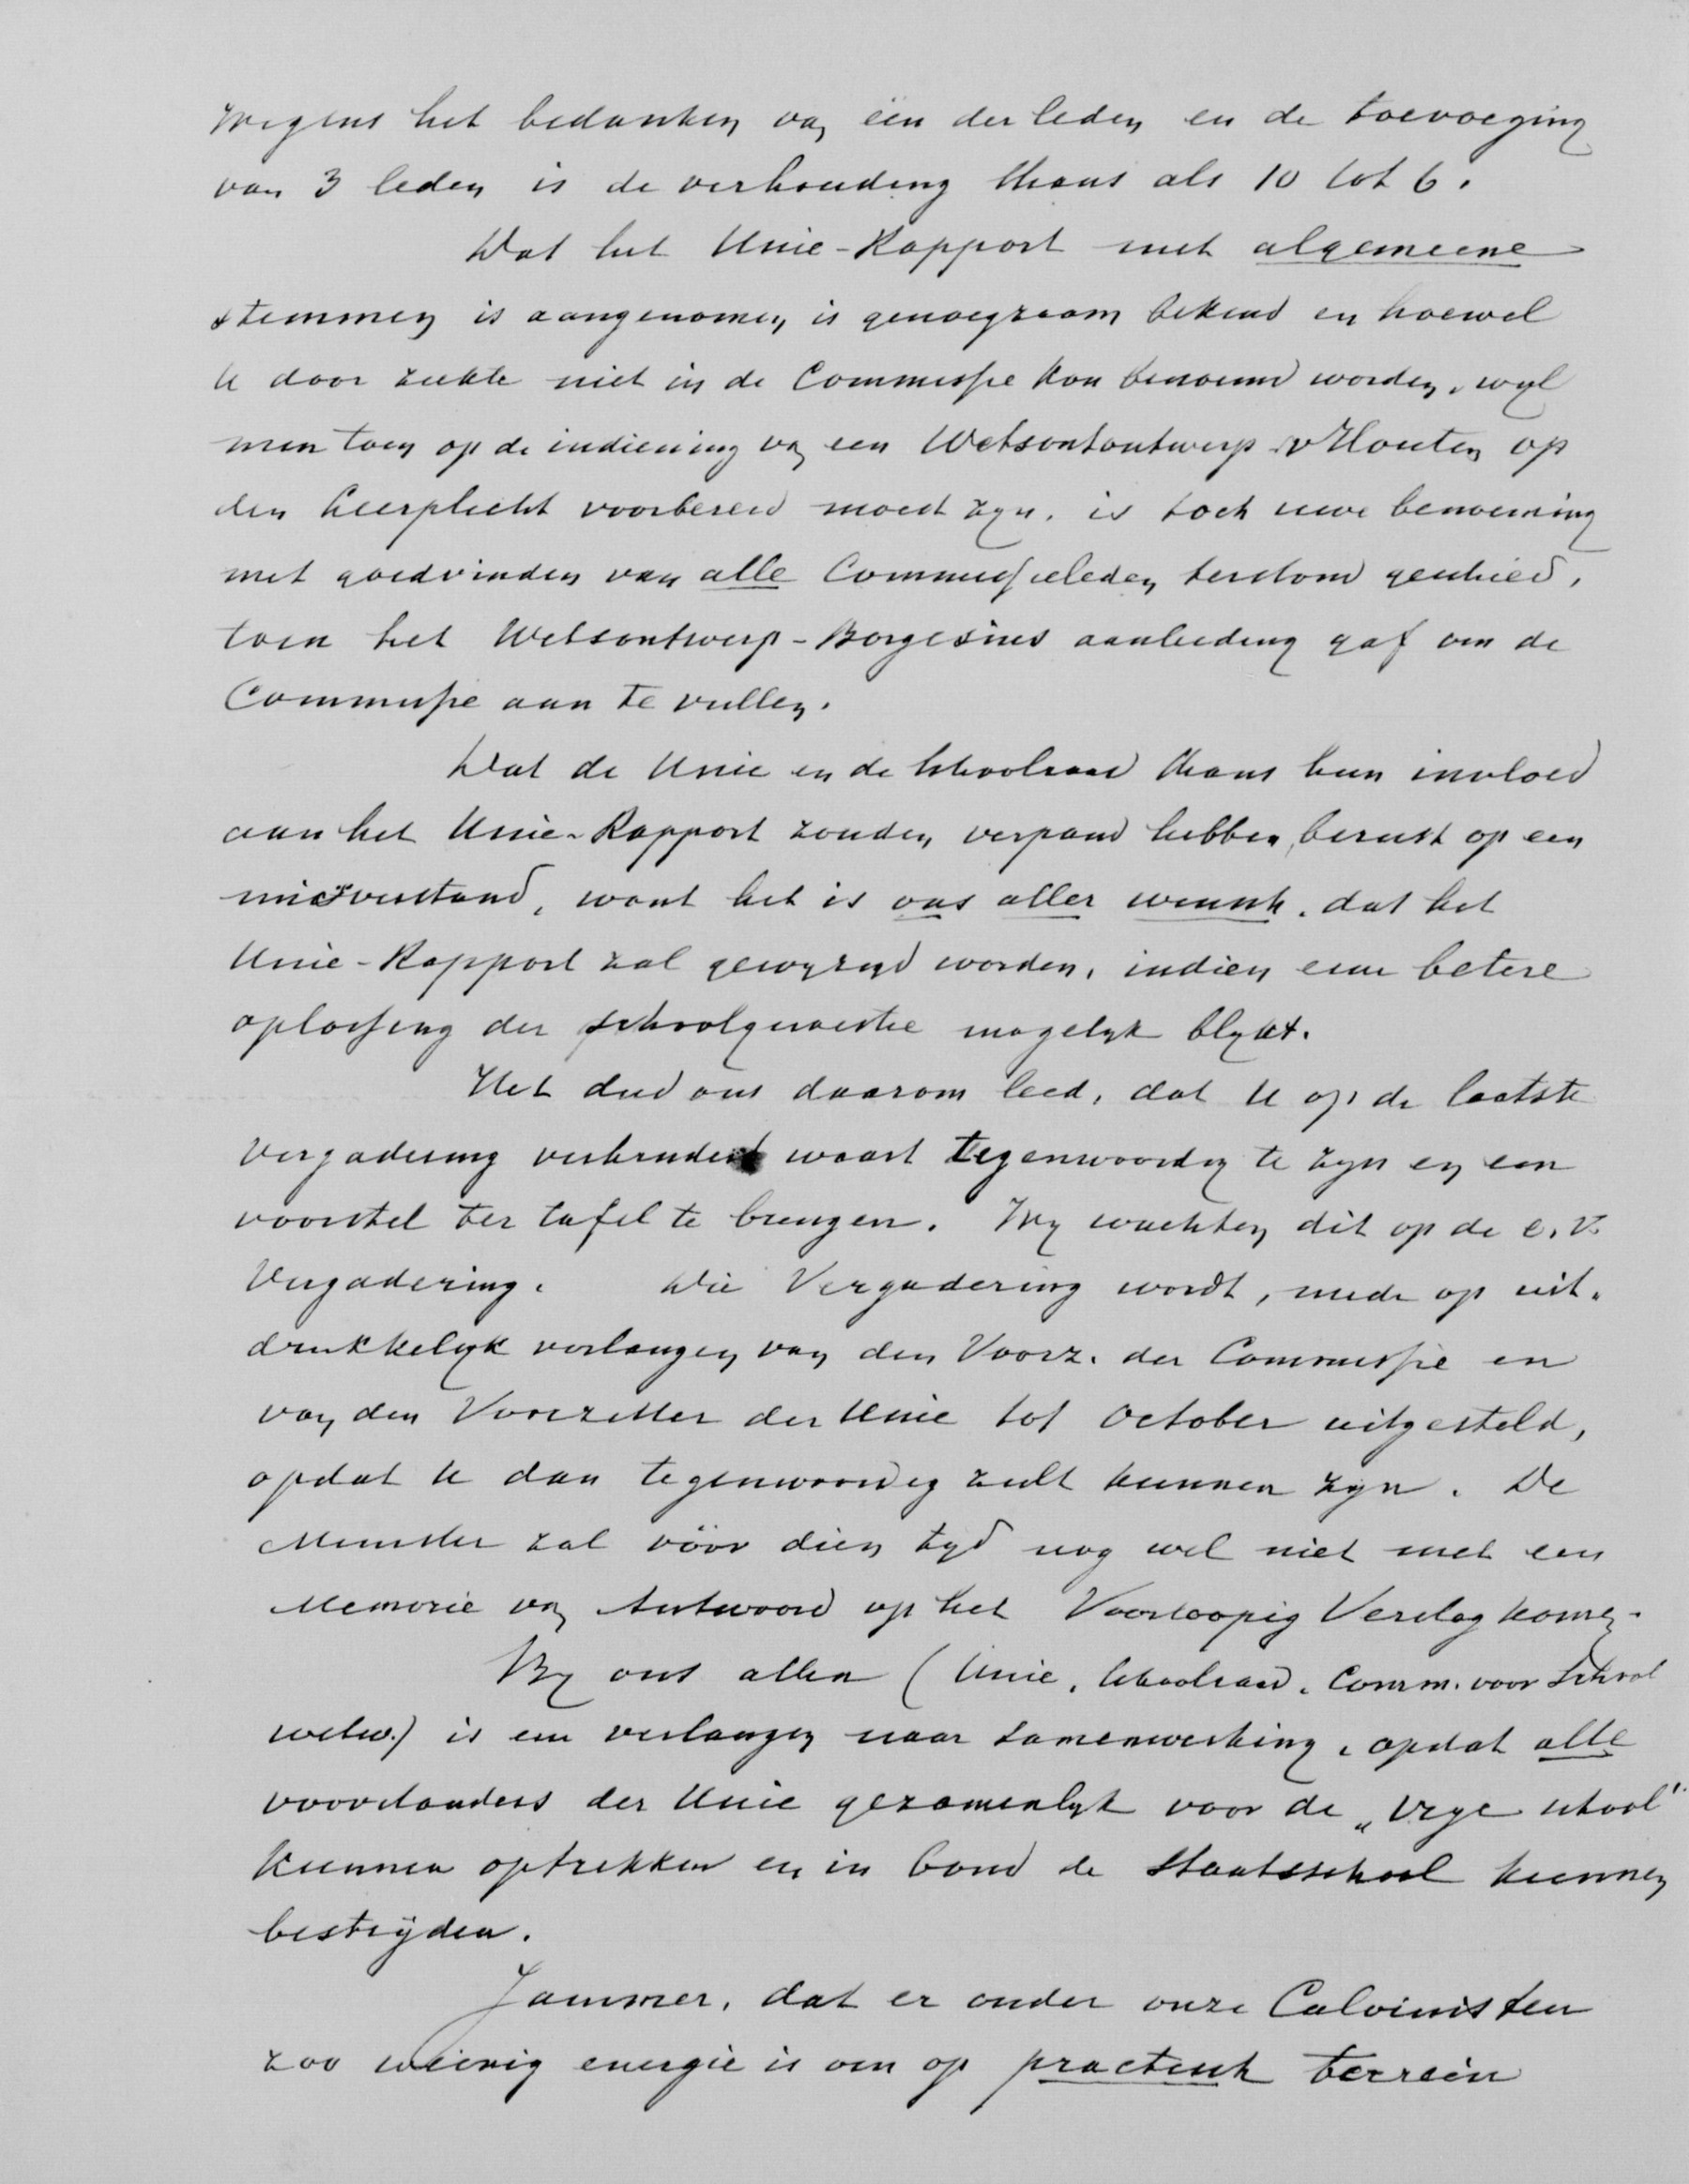 Wegens het bedanken van één der leden en de toevoeging
van 3 leden is de verhouding thans als 10 tot 6.
Dat het Unie-Rapport met algemeene
stemmen is aangenomen, is genoegzaam bekend en hoewel
U door ziekte niet in de Commissie kon benoemd worden, wyl
men toen op de indiening van een Wetsontontwerp v Houten op
den Leerplicht voorbereid moest zyn, is toch uwe benoeming
met goedvinden van alle Commissieleden terstond geschied,
toen het Wetsontwerp-Borgesius aanleiding gaf om de
Commissie aan te vullen.
Dat de Unie en de Schoolraad thans hun invloed
aan het Unie-Rapport zouden verpand hebben, berust op een
misverstand, want het is ons aller wensch, dat het
Unie-Rapport zal gewyzigd worden, indien eene betere
oplossing der schoolquaestie mogelyk blykt.
Het deed ons daarom leed, dat U op de laatste
Vergadering verhinderd waart tegenwoordig te zyn en een
voorstel ter tafel te brengen. Wy wachten dit op de e.v.
Vergadering. Die Vergadering wordt, mede op uit-
drukkelyk verlangen van den Voorz. der Commissie en
van den Voorzitter der Unie tot October uitgesteld,
opdat U dan tegenwoordig zult kunnen zyn. De
Minister zal vóór dien tyd nog wel niet met een
Memorie van Antwoord op het Voorloopig Verslag komen.
By ons allen (Unie, Schoolraad, Comm. voor School
wetw.) is een verlangen naar samenwerking, opdat alle
voorstanders der Unie gezamenlyk voor de „Vrye school"
kunnen optrekken en in bond de Staatsschool kunnen
bestrijden.
Jammer, dat er onder onze Calvinisten
zoo weinig energie is om op practisch terrein